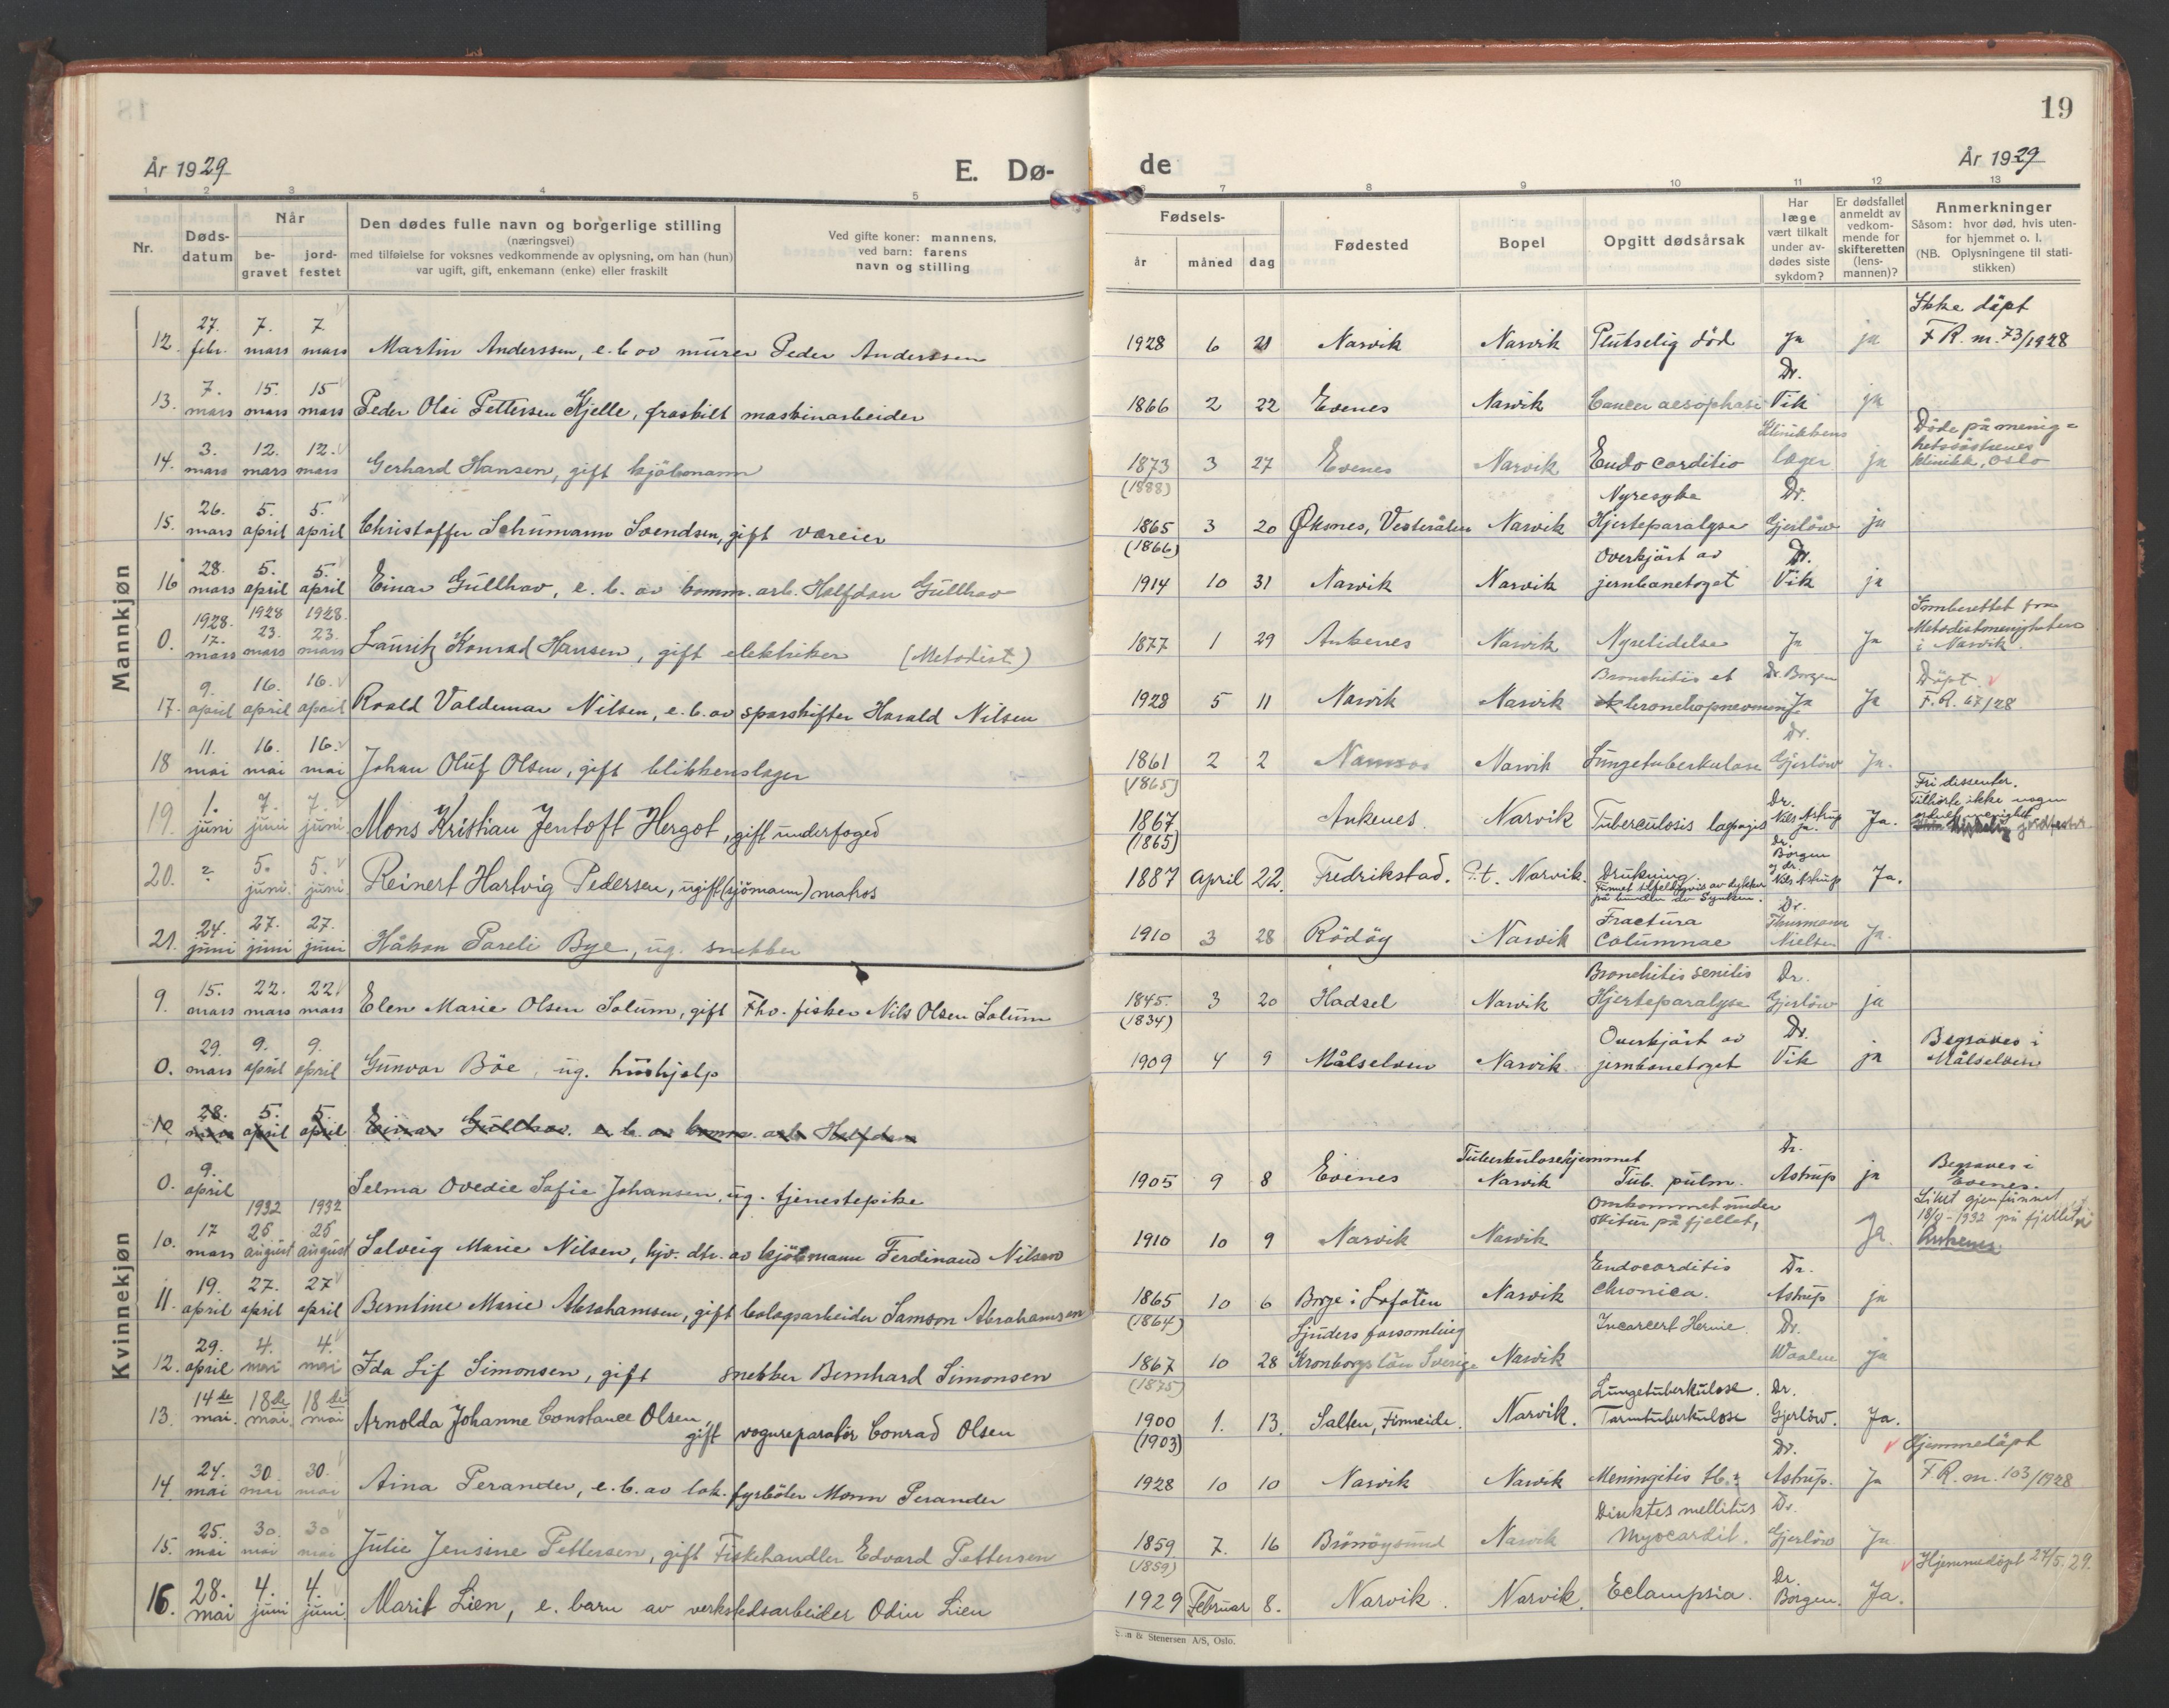 19
År 1929
E. Dø-
de
År 1929
1 2 3 4 5 6 7 8 9 10 11 12 13
Nr.
Døds-
datum
Når
be-
gravet
jord-
festet
Den dødes fulle navn og borgerlige stilling
(næringsvei)
med tilføielse for voksnes vedkommende av oplysning, om han (hun)
var ugift, gift, enkemann (enke) eller fraskilt
Ved gifte koner: mannens,
ved barn: farens
navn og stilling
Fødsels-
år måned dag
Fødested
Bopel
Opgitt dødsårsak
Har
læge
vært tilkalt
under av-
dødes siste
sykdom?
Er dødsfallet
anmeldt av
vedkom-
mende for
skifteretten
(lens-
mannen)?
Anmerkninger
Såsom: hvor død, hvis uten-
for hjemmet o. l.
(NB. Oplysningene til stati-
stikken)
Mannkjøn
12. 27. febr. 7. mars 7. mars Martin Anderssen, e. b. av murer Peder Anderssen 1928 6 21 Narvik Narvik Plutselig död Ja ja Ikke döpt F R. nr. 73/1928
13. 7. mars 15. mars 15 mars Peder Olai Pettersen Kjelle, fraskilt maskinarbeider 1866 2 22 Evenes Narvik Cancer aesophasi Dr. Vik ja
14. 3. mars 12. mars 12. mars Gerhard Hansen, gift kjöbmann 1873 (1888) 3 27 Evenes Narvik Endocarditis Klinikkens læger ja Döde på menig=hetssöstrenes klinikk, Oslo
15. 26. mars 5. april 5. april Christoffer Schumann Svendsen, gift vareier 1865 (1866) 3 20 Øksnes, Vesterålen Narvik Nyresyke Hjerteparalyse Dr. Gjerlöw ja
16 28. mars 5. april 5. april Einar Gullhav, e. b. av komm. arb. Halfdan Gullhav 1914 10 31 Narvik Narvik Overkjört av jernbanetoget Dr. Vik ja
0. 1928. 17. mars 1928 23. mars 1928. 23. mars Lauritz Konrad Hansen, gift elektriker (Metodist) 1877 1 29 Ankenes Narvik Nyrelidelse Ja Ja Innberettet fra Metodistmenigheten i Narvik.
17. 9. april 16. april 16. april Roald Valdemar Nilsen, e. b. av sporskifter Harald Nilsen 1928 5 11 Narvik Narvik Bronchitis et bronchopneumoni Dr. Borgen Ja Ja Döpt. F. R. 67/28
18 11. mai 16. mai 16. mai Johan Oluf Olsen, gift blikkenslager 1861 (1865) 2 2 Namsos Narvik Lungetuberkulose Dr. Gjerlöw Ja.
19. 1. juni 7. juni 7. juni Mons Kristian Jentoft Hergot, gift underfoged 1867 (1865) Ankenes Narvik Tuberculosis Dr. Nils Astrup ja. Ja. Fri dissenter. Tilhörte ikke nogen
20. ? 5. juni 5. juni Reinert Hartvig Pedersen, ugift (sjömann) matros 1887 April 22. Fredrikstad. P.t. Narvik. Drukning. Funnet tilfeldigvis av dykker på bunden av Dr. Borgen og dr. Nils Astrup Ja.
21. 24. juni 27. juni 27. juni Håkon Pareli Bye, ug. snekker 1910 3 28 Rödöy Narvik Fractura Columnae Dr. Thurmann Nielsen Ja.
Kvinnekjøn
9. 15. mars 22. mars 22 mars Elen Marie Olsen Solum, gift Fhv. fisker Nils Olsen Solum 1845. (1834) 3 20 Hadsel Narvik Bronchitis senilis Hjerteparalyse Dr. Gjerlöw ja
0. 29. mars 9. april 9. april Gunvor Böe, ug. hushjelp 1909 4 9 Målselven Narvik Overkjört av jernbanetoget Dr. Vik ja Begraves i Målselven
10 28. mars 5. april 5. april Einar Gullhav. e. b. av komm. arb. Halfdan
0. 9. april Selma Ovedie Sofie Johansen, ug. tjenestepike 1905 9 8 Evenes Tuberkulosehjemmet Narvik Tub. pulm. Dr. Astrup ja Begraves i Evenes.
10. 17 mars 1932 26 august 1932 26 august Solveig Marie Nilsen, hjv. dtr. av kjöbmann Ferdinand Nilsen 1910 10 9 Narvik Narvik Omkommet under skitur på fjellet, Ja. Liket gjenfunnet 18/8-1932 på fjellet i Ankenes
11. 19. april 27. april 27 april Berntine Marie Abrahamsen, gift bolagsarbeider Samson Abrahamsen 1865 (1864) 10 6 Borge i Lofoten Narvik Endocarditis Chronica. Dr. Astrup ja
12. 29. april 4. mai 4. mai Ida Sif Simonsen, gift snekker Bernhard Simonsen 1867 (1875) 10 28 Ljuders forsamling Kronborgs län Sverige Narvik Incarcert Hernie. Dr. Waalen ja
13. 14de mai. 18de mai. 18de mai Arnolda Johanne Constance Olsen, gift vognreparatör Conrad Olsen 1900 (1903) 1. 13. Salten, Finneide. Narvik. Lungetuberkulose. Tarmtuberkulose Dr. Gjerlöw. Ja.
14. 24. mai 30. mai 30. mai Aina Perander, e. b. av lok. fyrböter Perander 1928 10 10 Narvik Narvik Meningitis tb. Dr. Astrup. Ja Hjemmedöpt F R. nr. 103/1928
15. 25. mai 30. mai 30 mai Julie Jensine Pettersen, gift Fiskehandler Edvard Pettersen 1859 (1859) 7. 16 Brönnöysund Narvik mellitus Myocardit. Dr. Gjerlöw Ja
16. 28. mai 4. juni 4. juni. Marit Lien, e. barn av verkstedsarbeider Odin Lien 1929 Februar 8. Narvik. Narvik. Eclampsia. Dr. Borgen. Ja. Hjemmedöpt 24/5. 29.
& Stenersen A/S, Oslo.